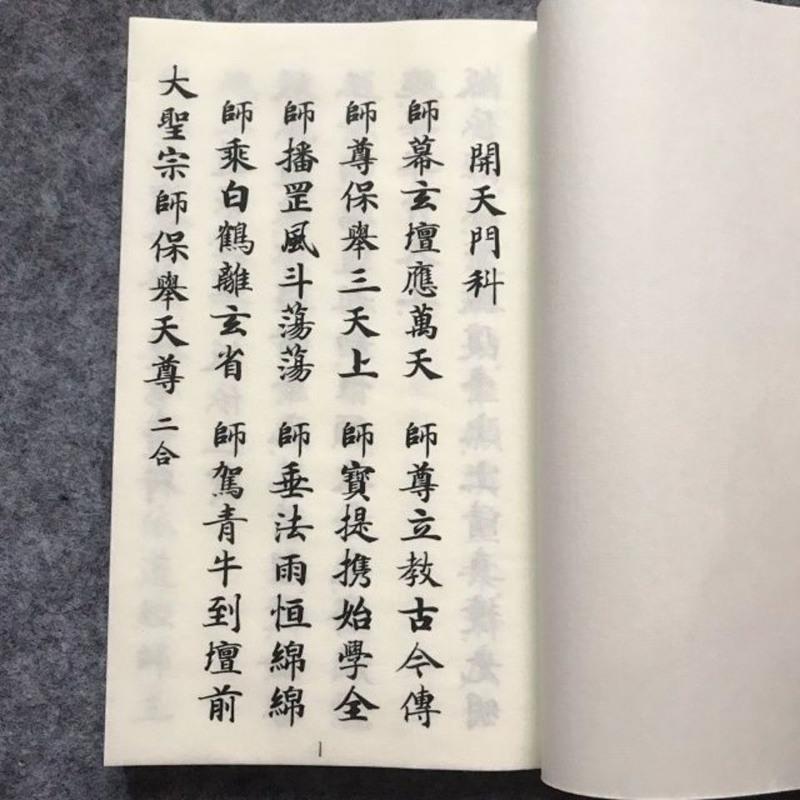 開天門科
師幕玄壇應萬天 師尊立教古今傳
師尊保舉三天上 師寶提携始學全
師播罡風斗蕩蕩 師垂法雨恒綿綿
師乘白鶴離玄省 師駕青牛到壇前
大聖宗師保舉天尊 二合
一